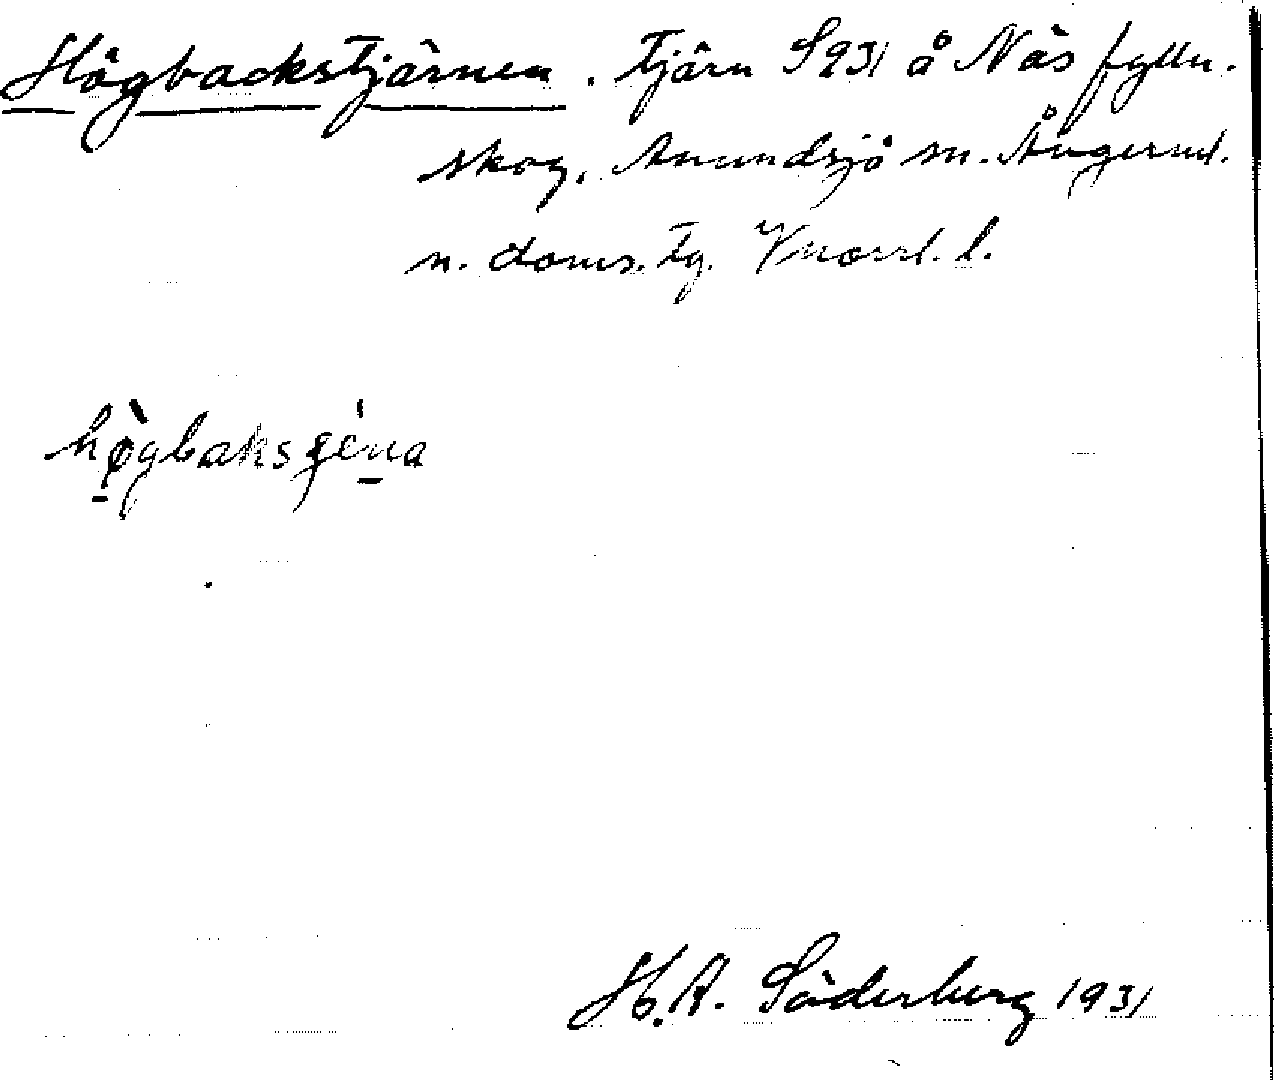 Högbackstjärnen. Tjärn S931 å Näs fylln.
skog, Anundsjö sn. Ångerml.
n. doms. tg. Vnorrl. l.
H.A. Söderberg 1931